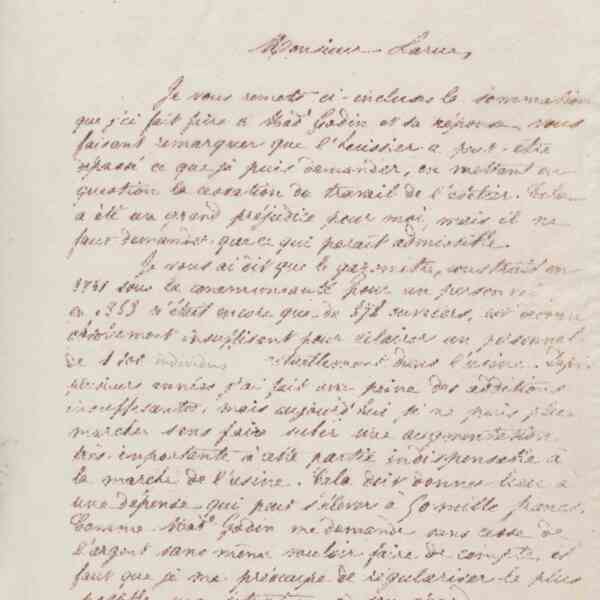 Monsieur Larue,
Je vous remets ci-incluse la sommation
que j'ai fait faire à Mad. Godin et sa réponse, vous
faisant remarquer que l'huissier a peut-être
dépassé ce que je puis demander, en mettant en
question la cessation du travail de l'atelier. Cela
a été un grand préjudice pour moi, mais il ne
faut demander que ce qui paraît admissible.
Je vous ai dit que le gazomètre, construit en
sous la communauté pour un personnel
en n'était encore que de ouvriers, est devenu
insuffisant pour éclairer un personnel
de individus actuellement dans l'usine. Depuis
plusieurs années j'ai fait une peine des additions
insuffisantes, mais aujourd'hui je ne puis plus
marcher sans faire subir une augmentation
très-importante à cette partie indispensable à
la marche de l'usine. Cela doit donner lieu à
une dépense qui peut s'élever à 50 mille francs.
Comme Mad. Godin me demande sans cesse de
l'argent sans même vouloir faire de compte, il
faut que je me préoccupe de régulariser le plus